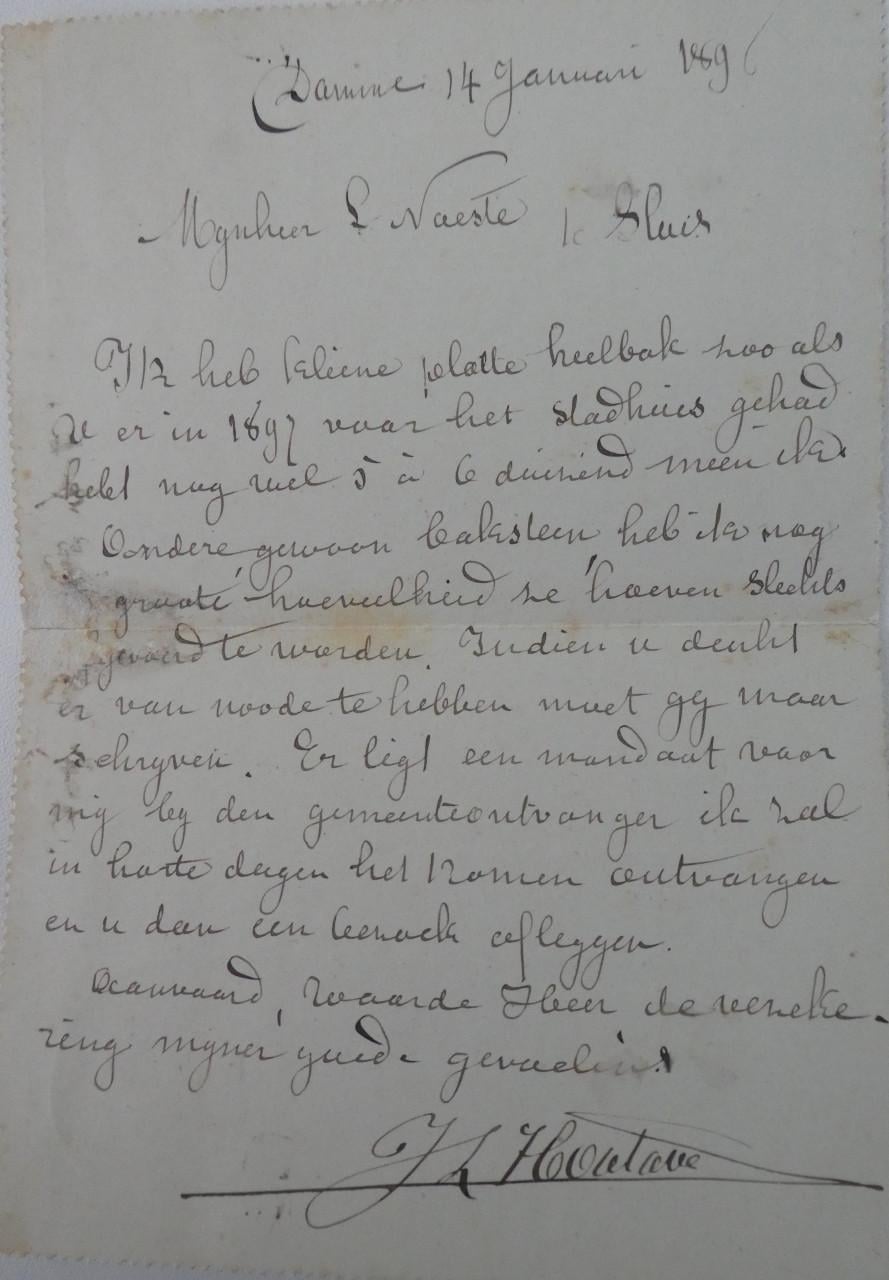 Damme 14 Januari 189
Mynheer L Naeste te Sluis
Ik heb kleine platte heelbak zoo als
U er in 1897 voor het stadhuis gehad
hebt nog wel 5 à 6 duizend meen ik
Aondere gewoon baksteen heb ik nog
groote hoeveelheid ze hoeven slechts
te worden. Indien u denkt
er van noode te hebben moet gy maar
schryven. Er ligt een mandaat voor
my by den gemeenteontvanger ik zal
in korte dagen het komen ontvangen
en u dan een bezoek afleggen.
Aanvaard, waarde Heer de verzeke-
ring myner goede gevoelens